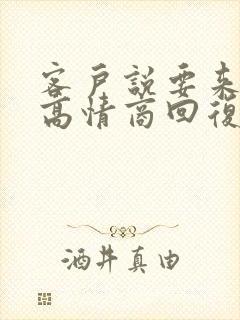 客戶說要來
高情商回復
酒井真由